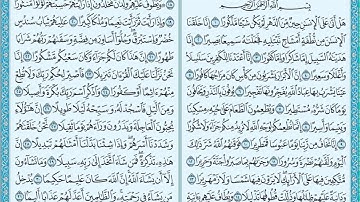 بِسْمِ اللَّهِ الرَّحْمَٰنِ الرَّحِيمِ
هَلْ أَتَىٰ عَلَى الْإِنسَانِ حِينٌ مِّنَ الدَّهْرِ لَمْ يَكُن شَيْئًا مَّذْكُورًا ١ إِنَّا خَلَقْنَا
الْإِنسَانَ مِن نُّطْفَةٍ أَمْشَاجٍ نَّبْتَلِيهِ فَجَعَلْنَاهُ سَمِيعًا بَصِيرًا ٢ إِنَّا
هَدَيْنَاهُ السَّبِيلَ إِمَّا شَاكِرًا وَإِمَّا كَفُورًا ٣ إِنَّا أَعْتَدْنَا لِلْكَافِرِينَ
سَلَاسِلَا وَأَغْلَالًا وَسَعِيرًا ٤ إِنَّ الْأَبْرَارَ يَشْرَبُونَ مِن كَأْسٍ كَانَ مِزَاجُهَا كَافُورًا ٥
عَيْنًا يَشْرَبُ بِهَا عِبَادُ اللَّهِ يُفَجِّرُونَهَا تَفْجِيرًا ٦ يُوفُونَ بِالنَّذْرِ وَيَخَافُونَ
يَوْمًا كَانَ شَرُّهُ مُسْتَطِيرًا ٧ وَيُطْعِمُونَ الطَّعَامَ عَلَىٰ حُبِّهِ مِسْكِينًا
وَيَتِيمًا وَأَسِيرًا ٨ إِنَّمَا نُطْعِمُكُمْ لِوَجْهِ اللَّهِ لَا نُرِيدُ مِنكُمْ جَزَاءً وَلَا شُكُورًا
٩ إِنَّا نَخَافُ مِن رَّبِّنَا يَوْمًا عَبُوسًا قَمْطَرِيرًا ١٠ فَوَقَاهُمُ اللَّهُ شَرَّ ذَٰلِكَ
الْيَوْمِ وَلَقَّاهُمْ نَضْرَةً وَسُرُورًا ١١ وَجَزَاهُم بِمَا صَبَرُوا جَنَّةً وَحَرِيرًا ١٢
مُّتَّكِئِينَ فِيهَا عَلَى الْأَرَائِكِ لَا يَرَوْنَ فِيهَا شَمْسًا وَلَا زَمْهَرِيرًا ١٣
وَدَانِيَةً عَلَيْهِمْ ظِلَالُهَا وَذُلِّلَتْ قُطُوفُهَا تَذْلِيلًا ١٤ وَيُطَافُ عَلَيْهِم بِآنِيَةٍ
وَيَطُوفُ عَلَيْهِمْ وِلْدَانٌ مُّخَلَّدُونَ إِذَا رَأَيْتَهُمْ حَسِبْتَهُمْ لُؤْلُؤًا مَّنثُورًا
١٩ وَإِذَا رَأَيْتَ ثَمَّ رَأَيْتَ نَعِيمًا وَمُلْكًا كَبِيرًا ٢٠ عَالِيَهُمْ ثِيَابُ
سُندُسٍ خُضْرٌ وَإِسْتَبْرَقٌ وَحُلُّوا أَسَاوِرَ مِن فِضَّةٍ وَسَقَاهُمْ رَبُّهُمْ شَرَابًا
طَهُورًا ٢١ إِنَّ هَٰذَا كَانَ لَكُمْ جَزَاءً وَكَانَ سَعْيُكُم مَّشْكُورًا ٢٢ إِنَّا
نَحْنُ نَزَّلْنَا عَلَيْكَ الْقُرْآنَ تَنزِيلًا ٢٣ فَاصْبِرْ لِحُكْمِ رَبِّكَ وَلَا تُطِعْ
مِنْهُمْ آثِمًا أَوْ كَفُورًا ٢٤ وَاذْكُرِ اسْمَ رَبِّكَ بُكْرَةً وَأَصِيلًا ٢٥
وَمِنَ اللَّيْلِ فَاسْجُدْ لَهُ وَسَبِّحْهُ لَيْلًا طَوِيلًا ٢٦ إِنَّ هَٰؤُلَاءِ
يُحِبُّونَ الْعَاجِلَةَ وَيَذَرُونَ وَرَاءَهُمْ يَوْمًا ثَقِيلًا ٢٧ نَّحْنُ خَلَقْنَاهُمْ
وَشَدَدْنَا أَسْرَهُمْ وَإِذَا شِئْنَا بَدَّلْنَا أَمْثَالَهُمْ تَبْدِيلًا ٢٨
إِنَّ هَٰذِهِ تَذْكِرَةٌ فَمَن شَاءَ اتَّخَذَ إِلَىٰ رَبِّهِ سَبِيلًا ٢٩ وَمَا تَشَاءُونَ
إِلَّا أَن يَشَاءَ اللَّهُ إِنَّ اللَّهَ كَانَ عَلِيمًا حَكِيمًا ٣٠
يُدْخِلُ مَن يَشَاءُ فِي رَحْمَتِهِ وَالظَّالِمِينَ أَعَدَّ لَهُمْ عَذَابًا أَلِيمًا ٣١